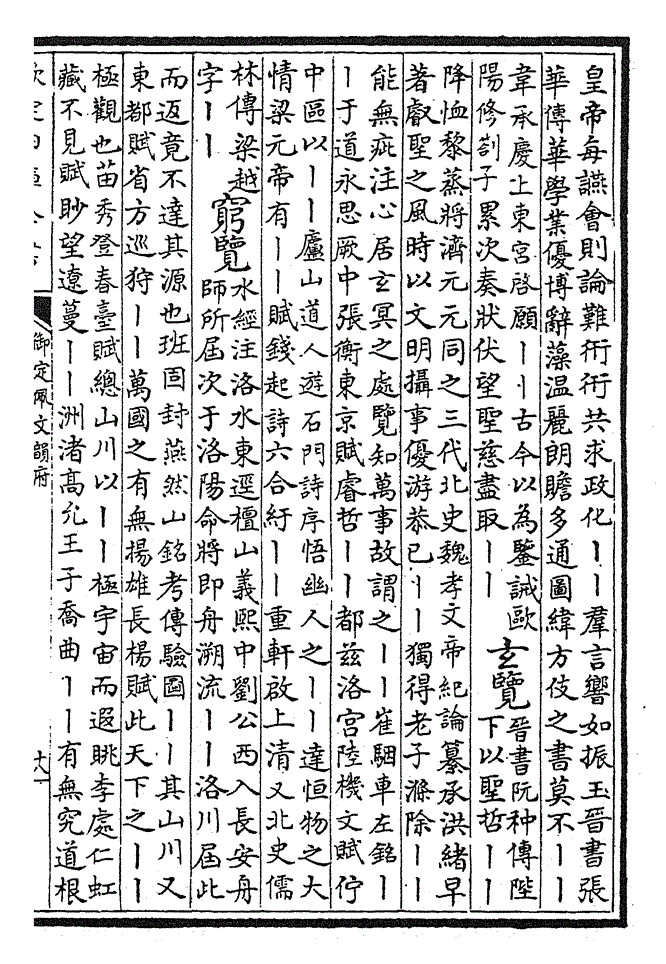 皇帝每讌會則論難衎衎共求政化丨丨羣言響如振玉晉書張
華傳華學業優博辭藻温麗朗贍多通圖緯方伎之書莫不丨丨
韋承慶上東宮啓願丨丨古今以為鑒誡歐
陽修劄子累次奏狀伏望聖慈盡取丨丨
玄覽
晉書阮种傳陛
下以聖哲丨丨
降恤黎蒸將濟元元同之三代北史魏孝文帝紀論纂承洪緒早
著叡聖之風時以文明攝事優游恭己丨丨獨得老子滌除丨丨
能無疵注心居玄冥之處覽知萬事故謂之丨丨崔駰車左銘丨
丨于道永思厥中張衡東京賦睿哲丨丨都兹洛宮陸機文賦佇
中區以丨丨廬山道人遊石門詩序悟幽人之丨丨達恒物之大
情梁元帝有丨丨賦錢起詩六合紆丨丨重軒啟上清又北史儒
林傳梁越
字丨丨
窮覽
水經注洛水東逕檀山義熙中劉公西入長安舟
師所屆次于洛陽命將即舟溯流丨丨洛川屆此
而返竟不達其源也班固封燕然山銘考傳驗圖丨丨其山川又
東都賦省方巡狩丨丨萬國之有無揚雄長楊賦此天下之丨丨
極觀也苗秀登春臺賦總山川以丨丨極宇宙而遐眺李處仁虹
藏不見賦眇望遼蔓丨丨洲渚高允王子喬曲丨丨有無究道根
御定佩文韻府